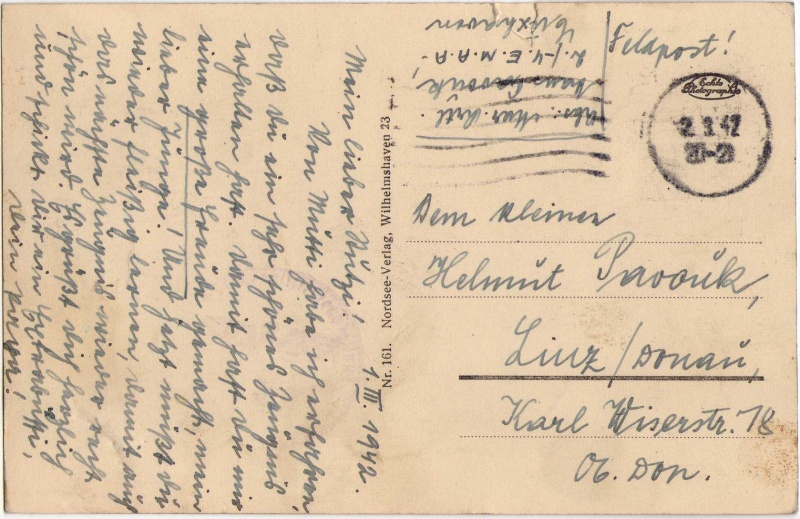 1. III. 1942.
Mein lieber
Von Mutti habe ich erfahren,
daß du ein sehr schönes Zeugnis
erhalten hast. Damit hast du mir
eine große Freude gemacht, mein
lieber Junge! Und jetzt mußt du
wieder fleißig lernen, damit auch
das nächste Zeugnis wieder recht
schön wird. Es grüßt dich herzlich
und schickt dir ein
dein Papa!
Nr. 161. Nordsee-Verlag, Wilhelmshaven 23
Feldpost!
Abs.: Mar. Artl.
2./4. E. M. A. A.
Cuxhaven
Echte
Photographie
2.3.42
20-21
Dem kleinen
Helmut Pavouk,
Linz/Donau,
Karl Wiserstr. 18
Ob. Don.